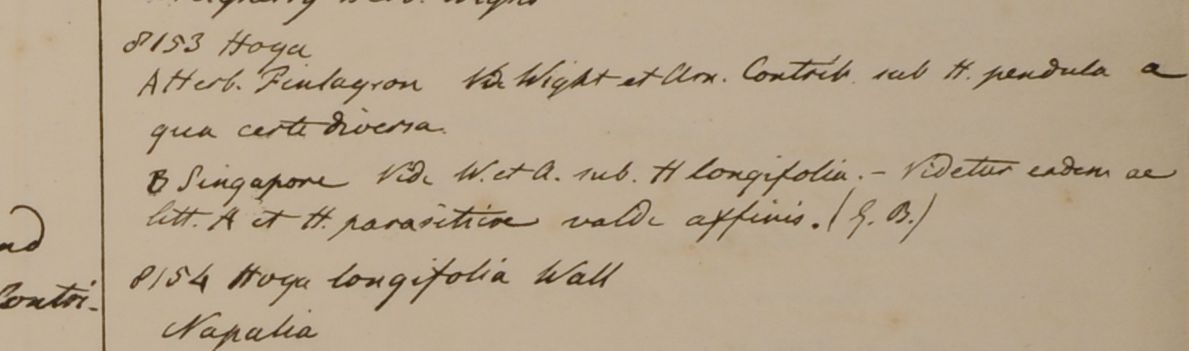 Herb. Wight
8153 Hoya
A Herb. Finlayson Vide Wight et Arn. Contrib. sub H. pendula a
qua certe diversa.
B Singapore Vide W. et A. sub. H longifolia. – Videtur eadem ac
litt. A et H. parasiticae valde affinis. (G. B.)
nd
Contri-
8154 Hoya longifolia Wall
Napalia